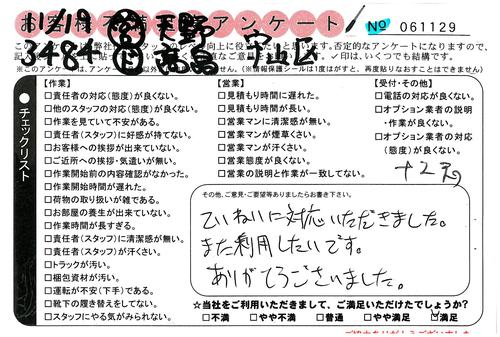 お客様不満足アンケート
11/19
№ 061129
【作業】
□責任者の対応(態度)が良くない。
□他のスタッフの対応(態度)が良くない。
□作業を見ていて不安がある。
□責任者(スタッフ)に好感が持てない。
□お客様への挨拶が出来ていない。
□ご近所への挨拶・気遣いが無い。
□作業開始前の内容確認がなかった。
□作業開始時間が遅れた。
□荷物の取り扱いが雑である。
□お部屋の養生が出来ていない。
□作業時間が長すぎる。
□責任者(スタッフ)に清潔感が無い。
□責任者(スタッフ)が汗くさい。
□トラックが汚い。
□梱包資材が汚い。
□運転が不安(下手)である。
□靴下の履き替えをしてない。
□スタッフにやる気がみられない。
【営業】
□見積もり時間に遅れた。
□見積もり時間が長い。
□営業マンに清潔感が無い。
□営業マンが煙草くさい。
□営業マンが汗くさい。
□営業態度が良くない。
□営業の説明と作業が一致してない。
【受付・その他】
□電話の対応が良くない。
□オプション業者の説明
・作業が良くない。
□オプション業者の対応
(態度)が良くない。
●チェックリスト
その他、ご意見・ご要望等ありましたらお書き下さい。
ていねいに対応いただきました。
また利用したいです。
ありがとうございました。
☆当社をご利用いただきまして、ご満足いただけたでしょうか?
□不満 □やや不満 □普通 □やや満足 □満足